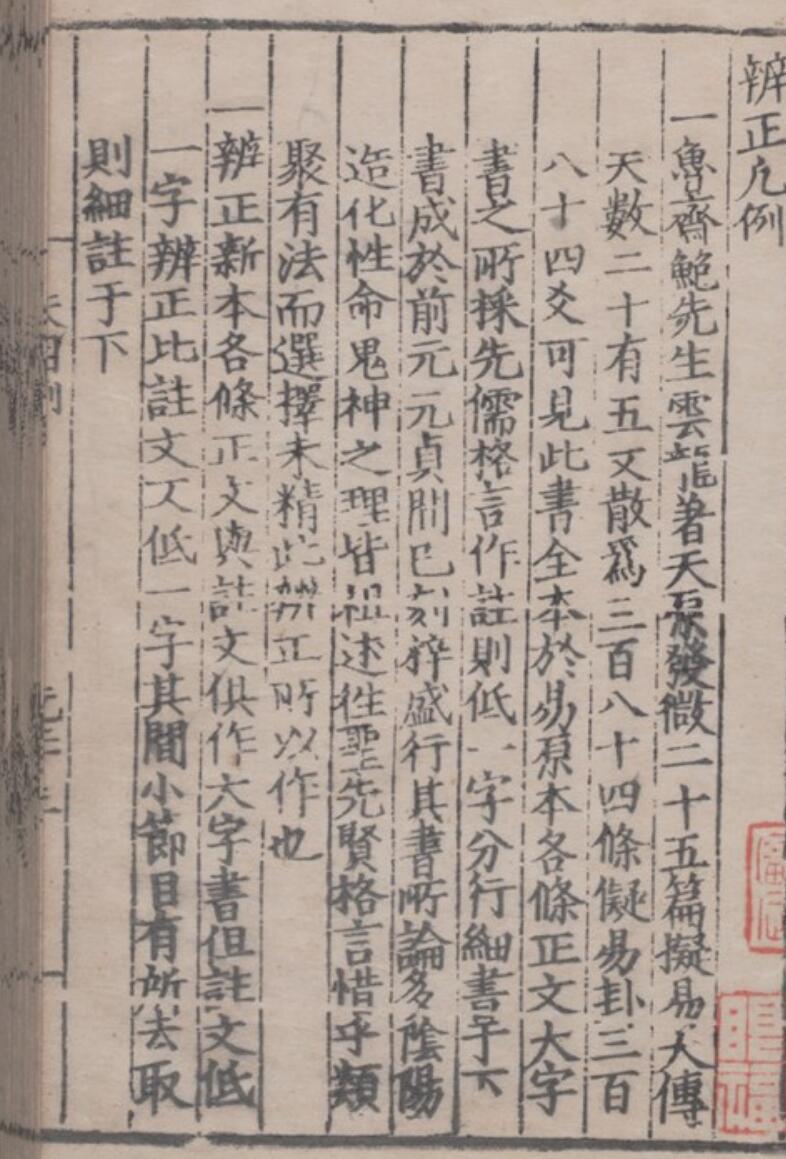 辨正凡例
一魯齋鮑先生雲龍著天原發微二十五篇擬易大傳
天數二十有五又散爲三百八十四條儗易卦三百
八十四爻可見此書全本於易原本各條正文大字
書之所採先儒格言作註則低一字分行細書于下
書成於前元元貞間已刻梓盛行其書所論多陰陽
造化性命鬼神之理皆祖述徃聖先賢格言惜乎類
聚有法而選擇未精此辨正所以作也
一辨正新本各條正文與註文俱作大字書但註文低
一字辨正比註文又低一字其間小節目有所去取
則細註于下